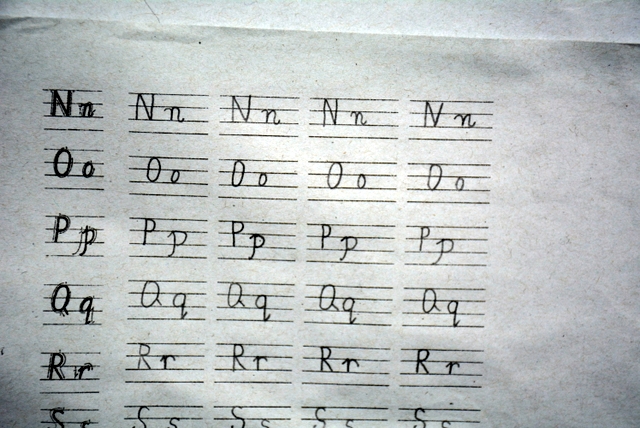 Nn Nn Nn Nn Nn
Oo Oo Oo Oo Oo
Pp Pp Pp Pp Pp
Qq Qq Qq Qq Qq
Rr Rr Rr Rr Rr
Ss Ss Ss Ss Ss